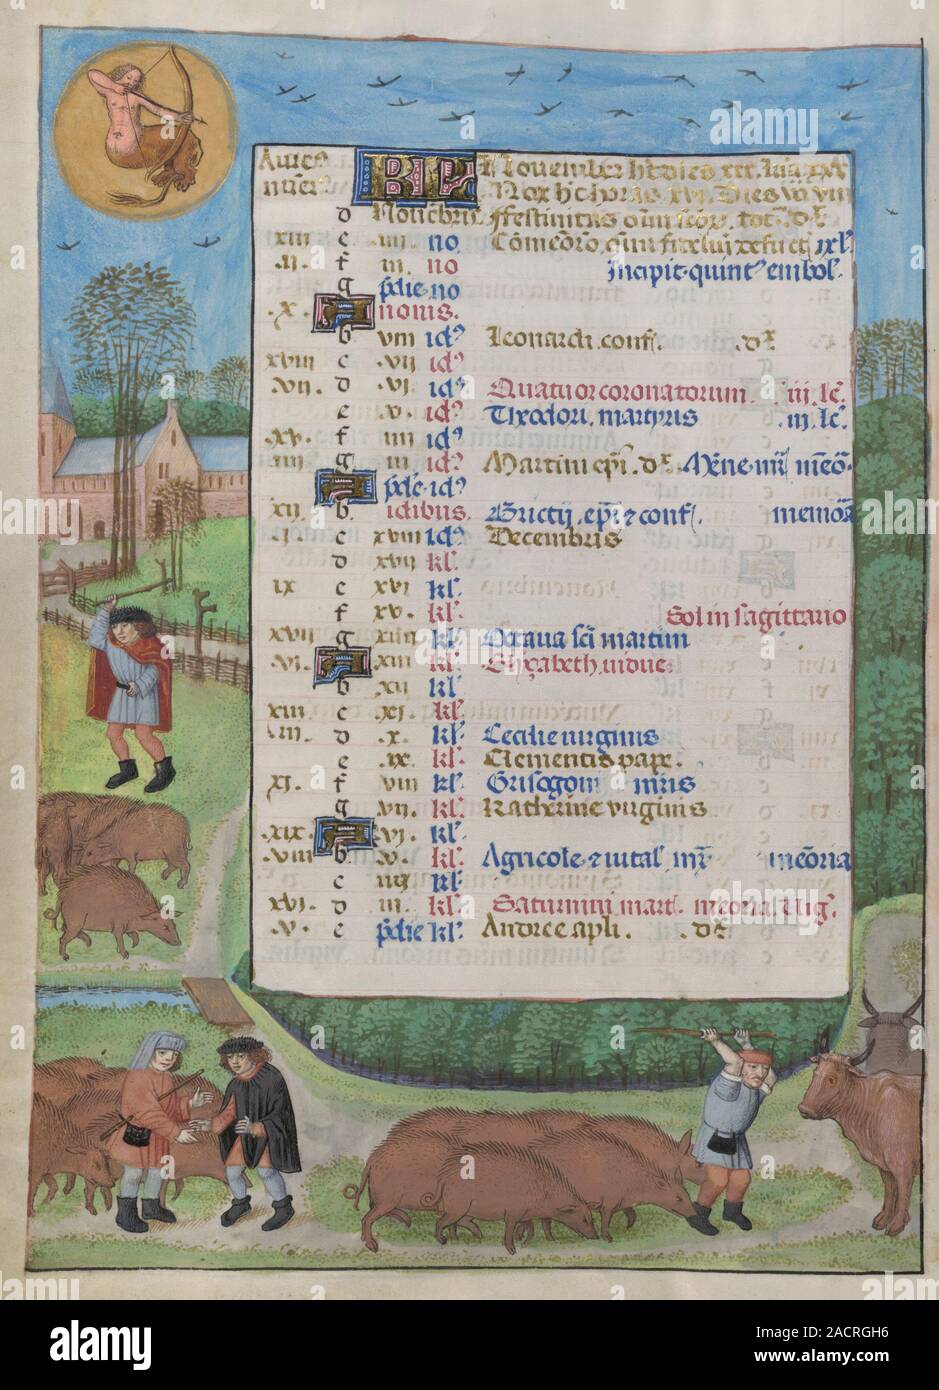 KL November habet dies xxx. luna xxx
Nox habet horas xvi. Dies vero viii
d Novembris Festivitas omnium sanctorum. tot. d
xiii e iiii no
xi. f iii no Incipit quint' embol'.
g pdie no
.x. A nonis.
b viii id' Leonardi conf.
xviii c .vii id'
.vii. d .vi id' Quatuor coronatorum. iii. lc.
e .v. id' Theodori martyris .iii. lc.
.xv. f iiii id'
.iiii g iii id' Martini epi. Menne mr. memo.
A pdie id'
xii b. idibus. Brictii. epi & conf. memoria
.i c xviii kl' Decembris
d xvii kl'.
ix e xvi kl'.
f xv. kl'. Sol in sagittario
xvii g xiiii kl'. Octava sci martini
.vi. A xiii kl'. Elyzabeth. vidue.
b xii kl'.
xiiii c .xi. kl'.
.iii. d .x. kl'. Cecilie virginis
e .ix. kl'. Clementis pape.
.xi. f viii kl'. Grisogoni mris
g .vii. kl'. Katherine virginis
.xix. A .vi. kl'.
.viii b. .v. kl'. Agricole & vital' mr memoria
c iiii kl'.
.xvi. d iii. kl'. Saturnini mart. meoria. Vig.
.v. e pdie kl'. Andree apli.
alamy
Image ID: 2ACRGH6
www.alamy.com